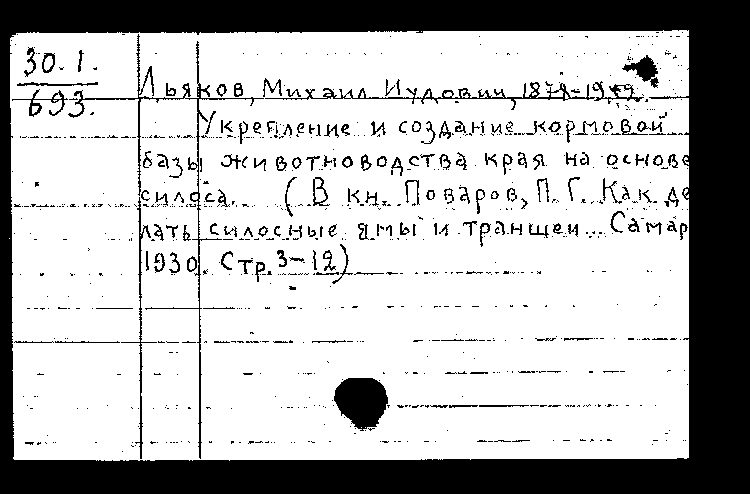 30.1.
693.
Дьяков, Михаил Иудович, 1878-1952.
Укрепление и создание кормовой
базы животноводства края на основе
силоса. (В кн. Поваров, П.Г. Как де
лать силосные ямы и траншеи... Самар
1930. Стр. 3-12)